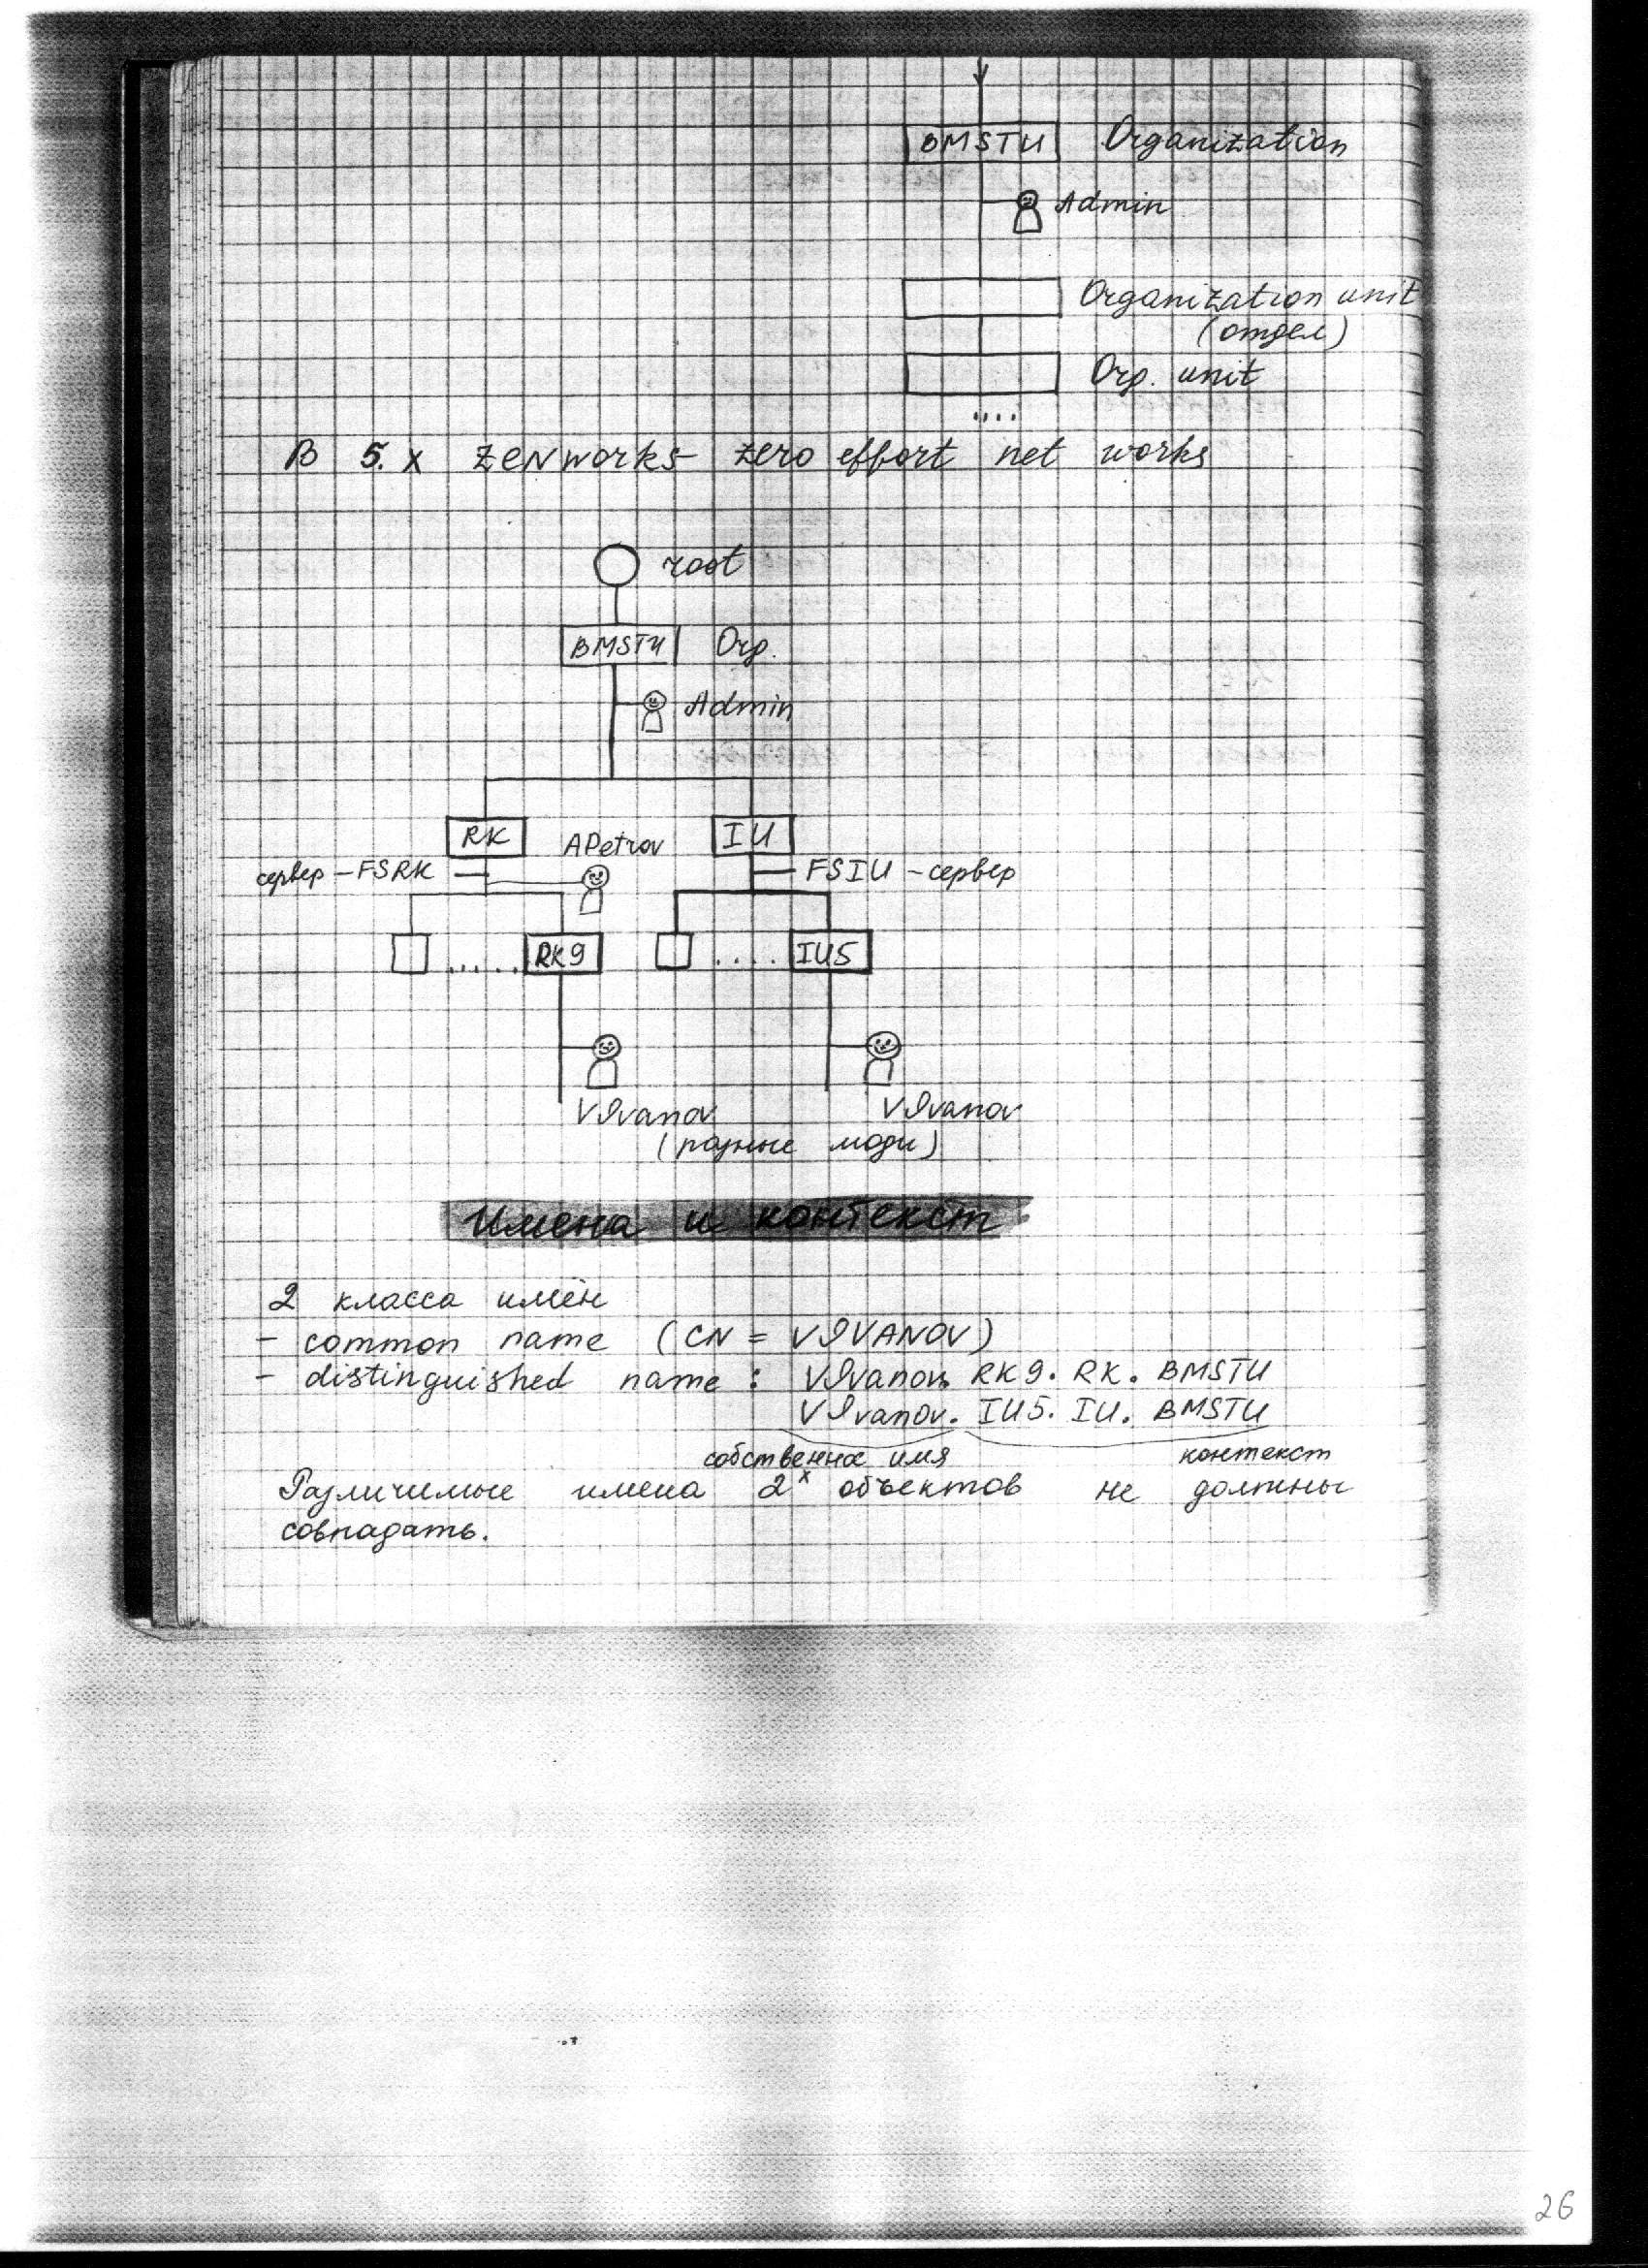 BMSTU Organization
Admin
Organization unit
(отдел)
Org. unit
....
В 5.x ZENworks - zero effort net works
root
BMSTU Org.
Admin
RK APetrov IU
сервер - FSRK FSIU - сервер
..... RK9 .... IU5
VIvanov VIvanov
(разные люди)
Имена и контекст
2 класса имён
- common name (CN = VIVANOV)
- distinguished name : VIvanov. RK9. RK. BMSTU
VIvanov. IU5. IU. BMSTU
собственное имя контекст
Различимые имена 2х объектов не должны
совпадать.
26